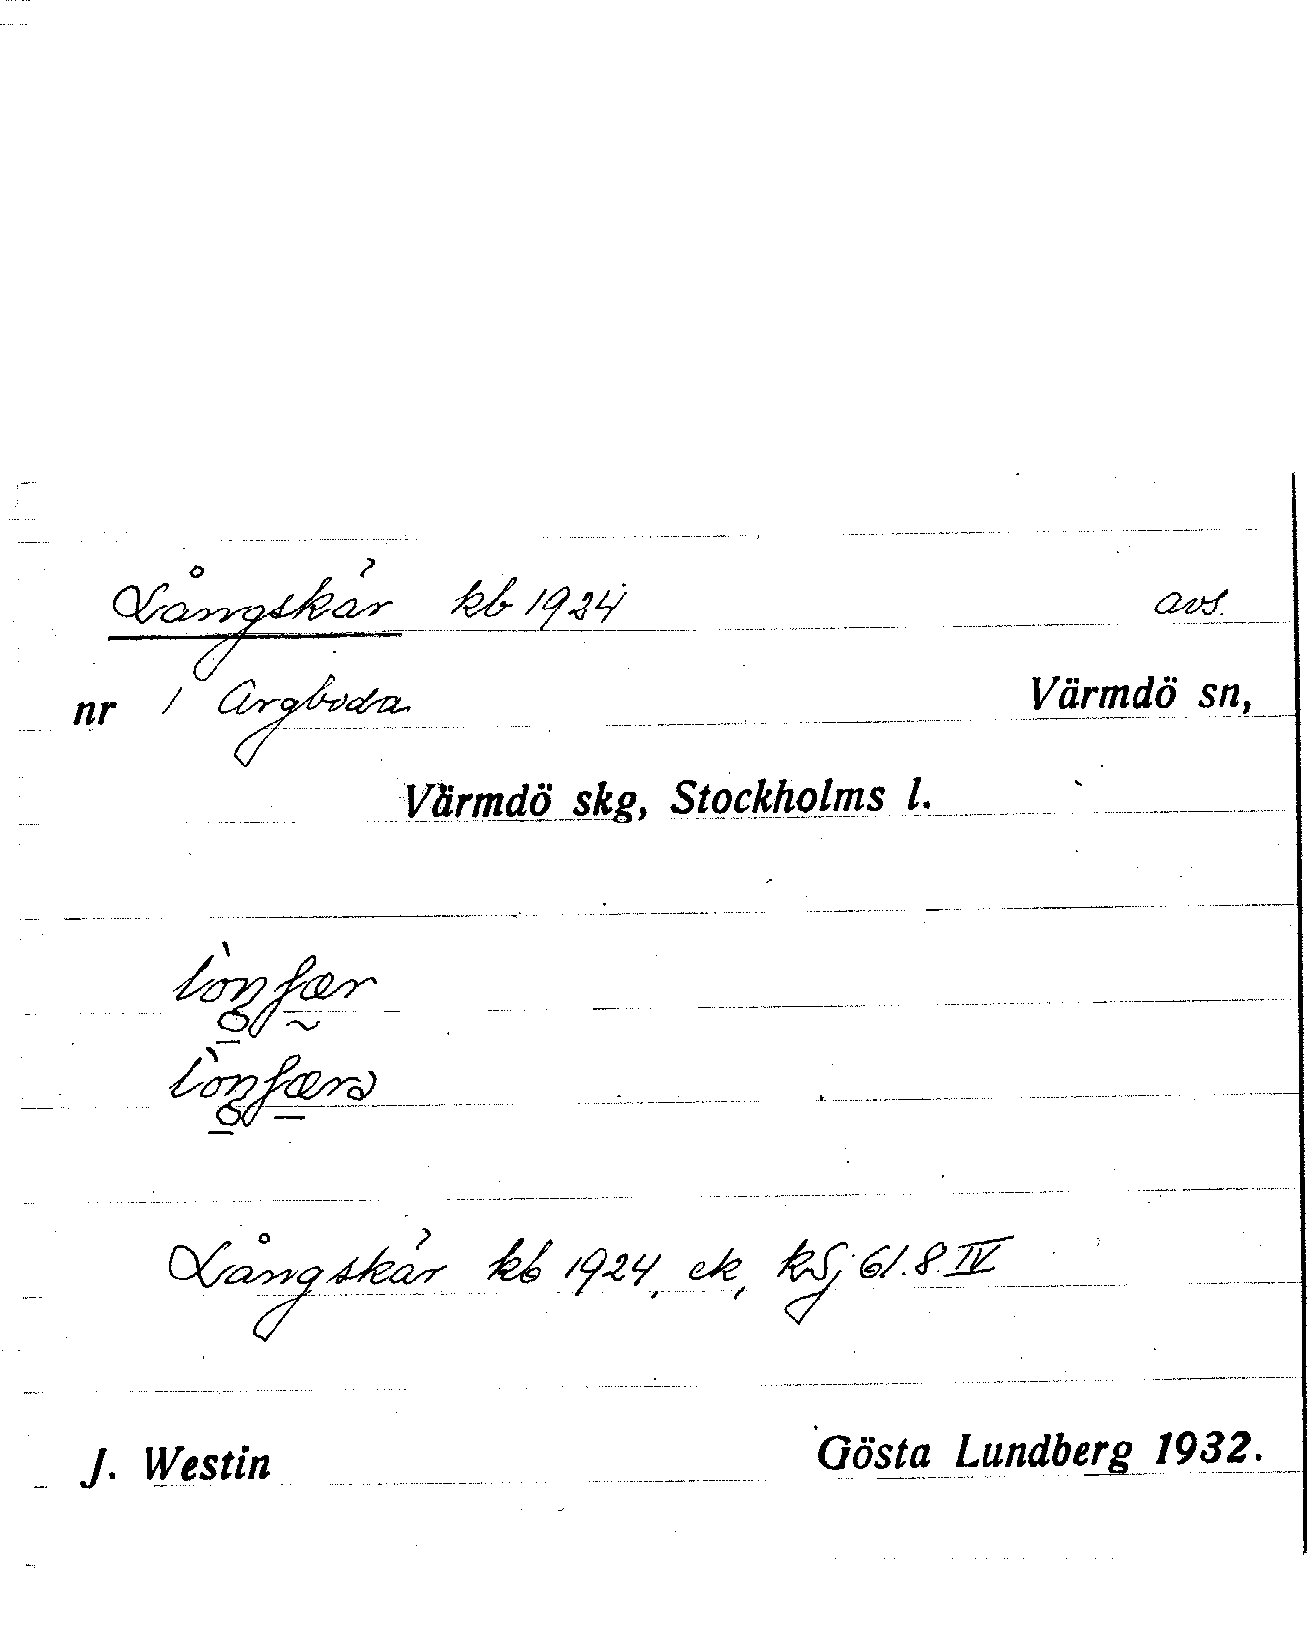 Långskär kb 1924 avs.
nr 1 Argboda Värmdö sn,
Värmdö skg, Stockholms l.
Långskär kb 1924, ek, kSj 61.8.IV
J. Westin Gösta Lundberg 1932.